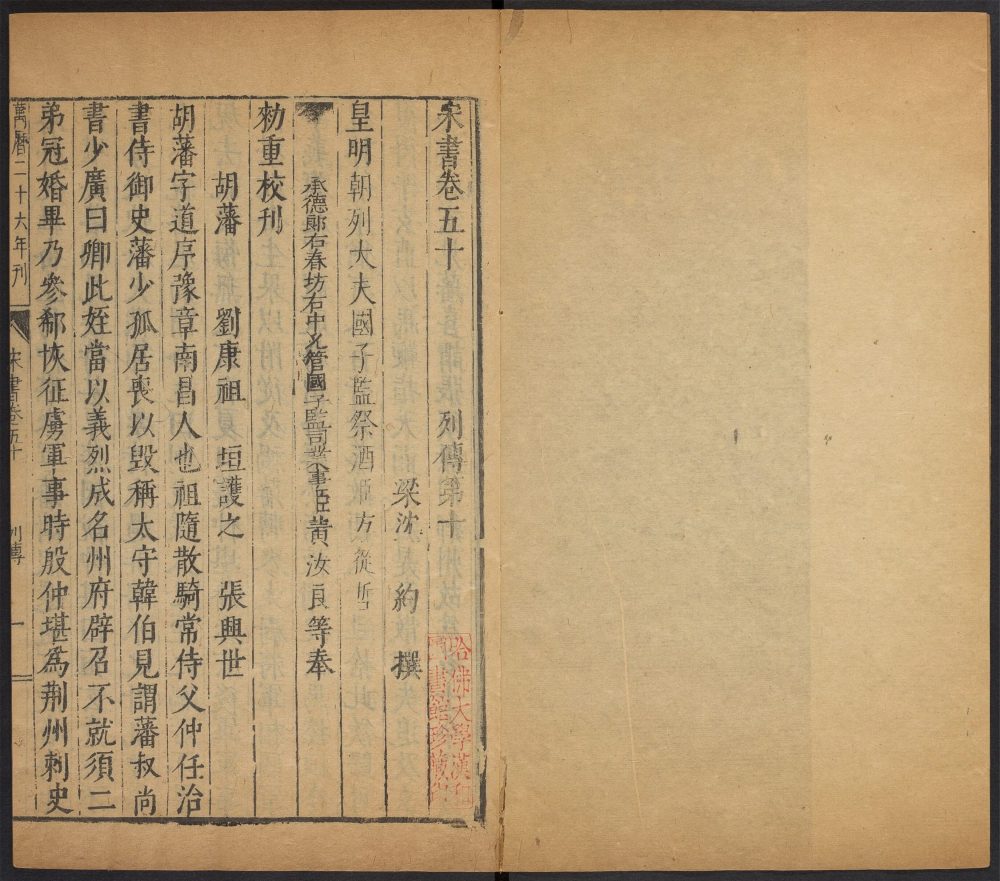 宋書卷五十 列傳第十
梁沈 約 撰
皇明朝列大夫國子監祭酒 方從哲
承德郎右春坊右中允管國子監司業事 黃汝良等奉
勅重校刊
胡藩 劉康祖 垣護之 張興世
胡藩字道序豫章南昌人也祖隨散騎常侍父仲任治
書侍御史藩少孤居喪以毀稱太守韓伯見謂藩叔尚
書少廣曰卿此姪當以義烈成名州府辟召不就須二
弟冠婚畢乃參郗恢征虜軍事時殷仲堪爲荆州刺史
萬曆二十六年刊
宋書卷五十
列傳
一
哈佛大學漢和
圖書館珍藏印